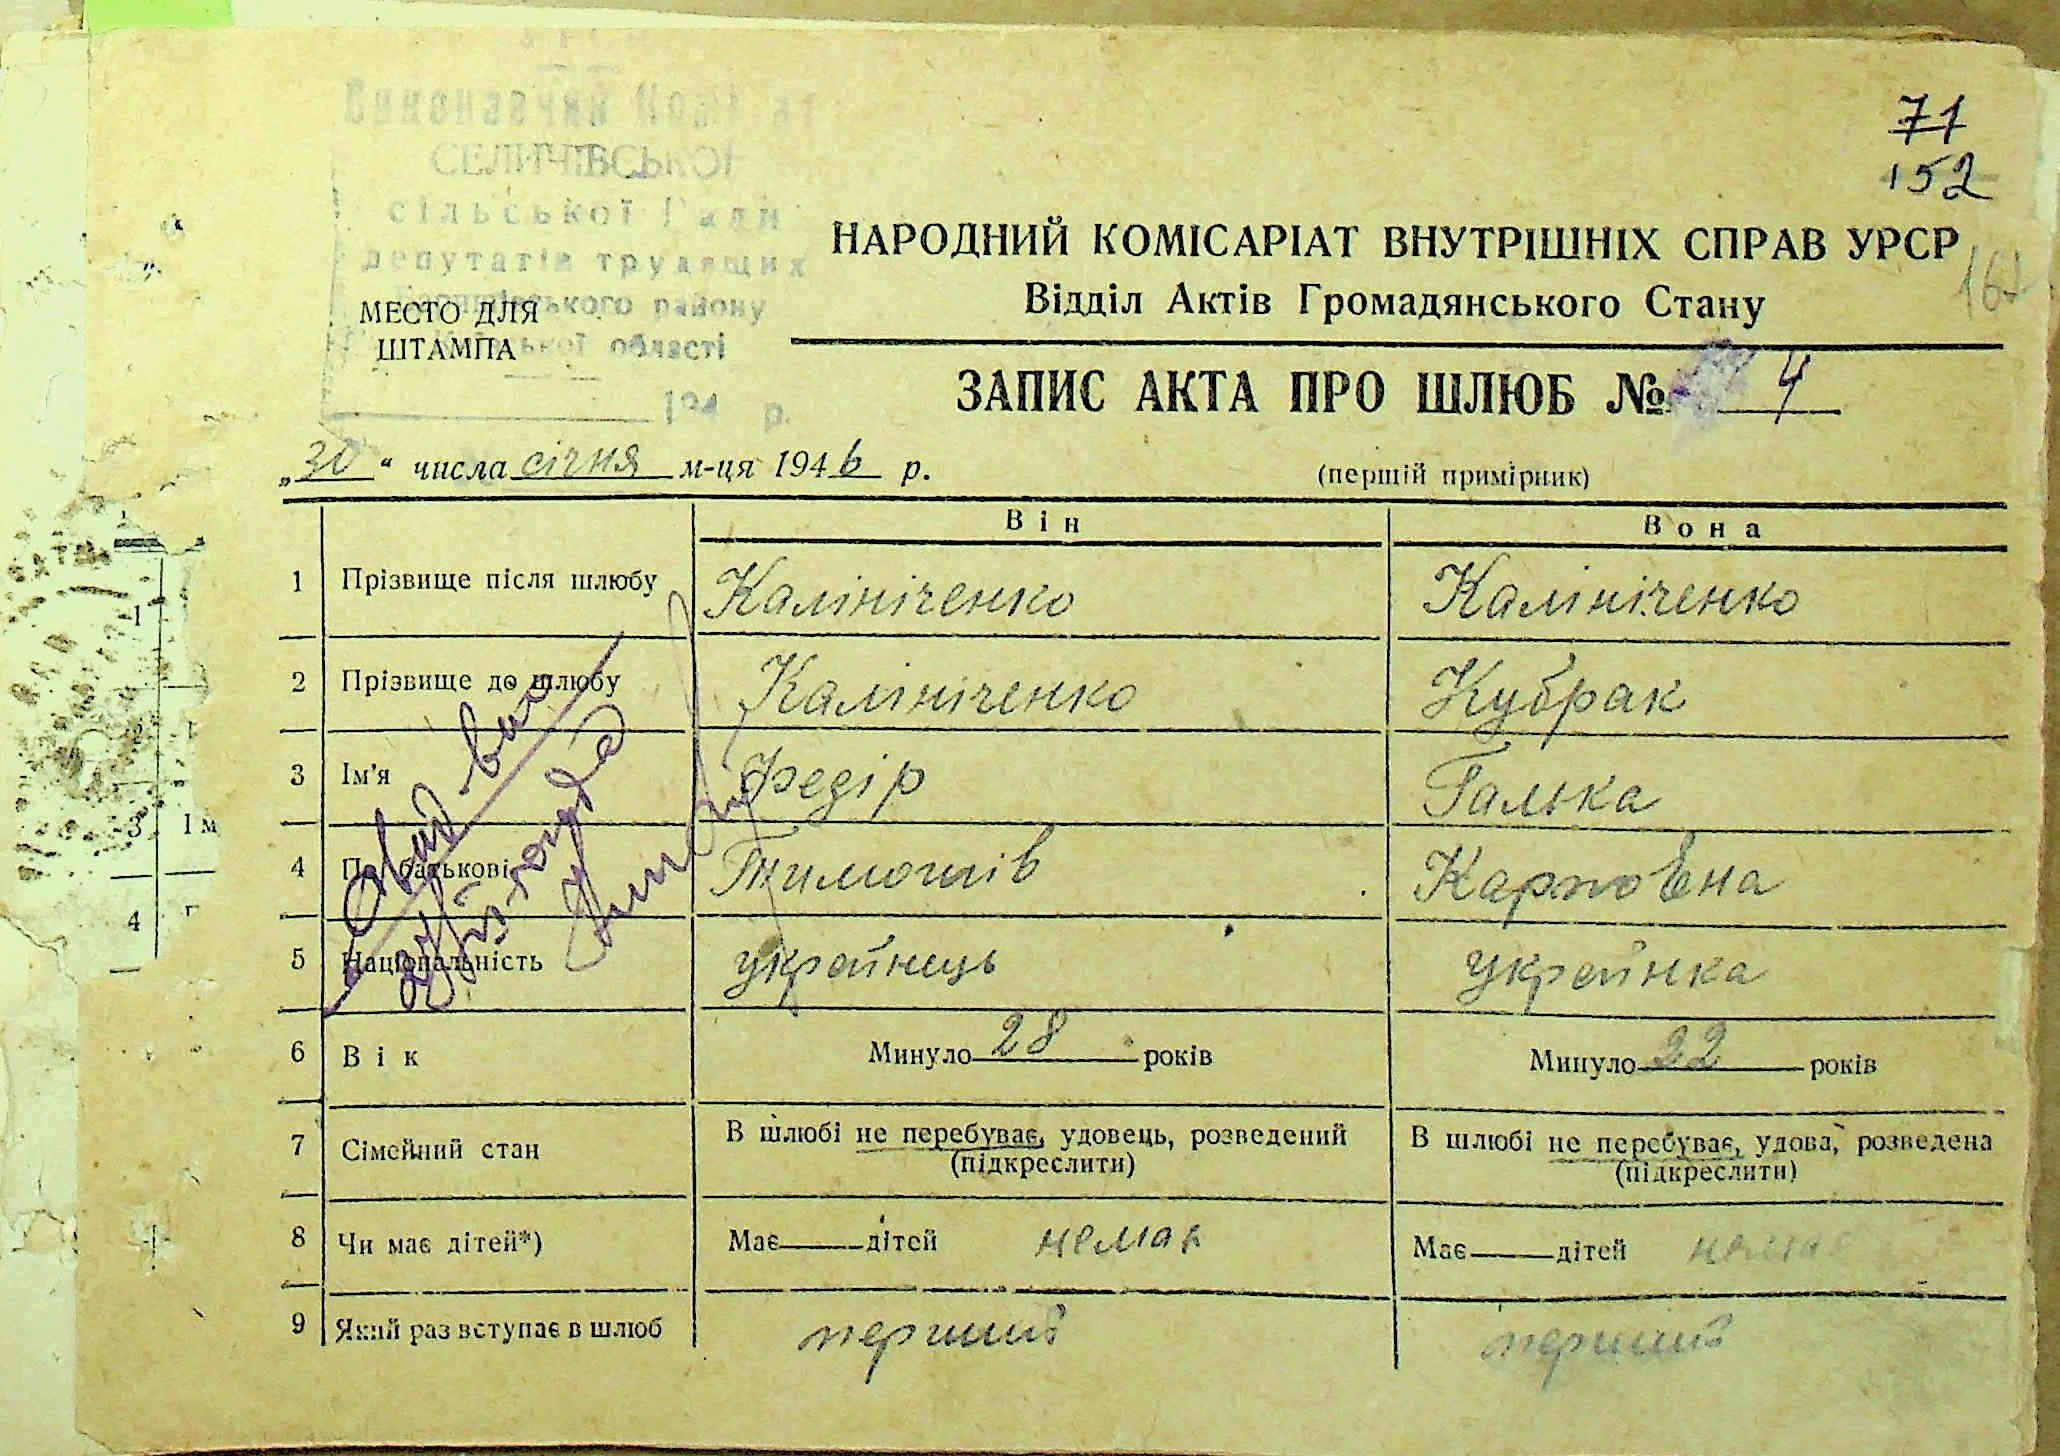 71
152
Виконавчий Комітет
СЕЛИЧІВСЬКОЇ
сільської Ради
депутатів трудящих
району
області
194 р.
МЕСТО ДЛЯ
ШТАМПА
НАРОДНИЙ КОМІСАРІАТ ВНУТРІШНІХ СПРАВ УРСР
167
Відділ Актів Громадянського Стану
ЗАПИС АКТА ПРО ШЛЮБ № 4
„30“ числа січня м-ця 1946 р.
(перший примірник)
Він Вона
1 Прізвище після шлюбу Калініченко Калініченко
2 Прізвище до шлюбу Калініченко Кубрак
3 Ім'я Федір Галька
4 По батькові Тимошів Карповна
5 Національність українець українка
6 Вік Минуло 28 років Минуло 22 років
7 Сімейний стан В шлюбі не перебуває, удовець, розведений В шлюбі не перебуває, удова, розведена
(підкреслити) (підкреслити)
8 Чи має дітей*) Має дітей немає Має дітей немає
9 Який раз вступає в шлюб перший перший
1
3 Ім
4